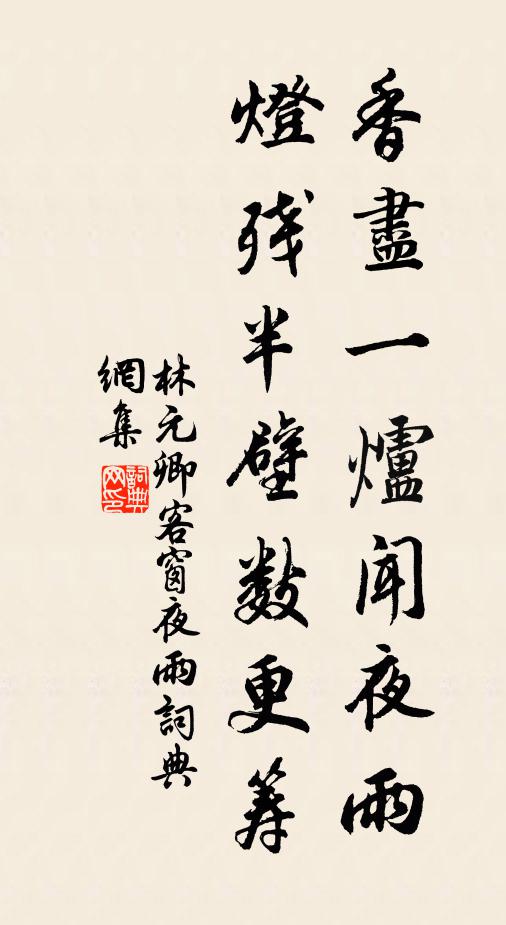 香盡一爐聞夜雨
燈残半壁數更筹
林元卿客窗夜雨詞典
網集
詞典
网印